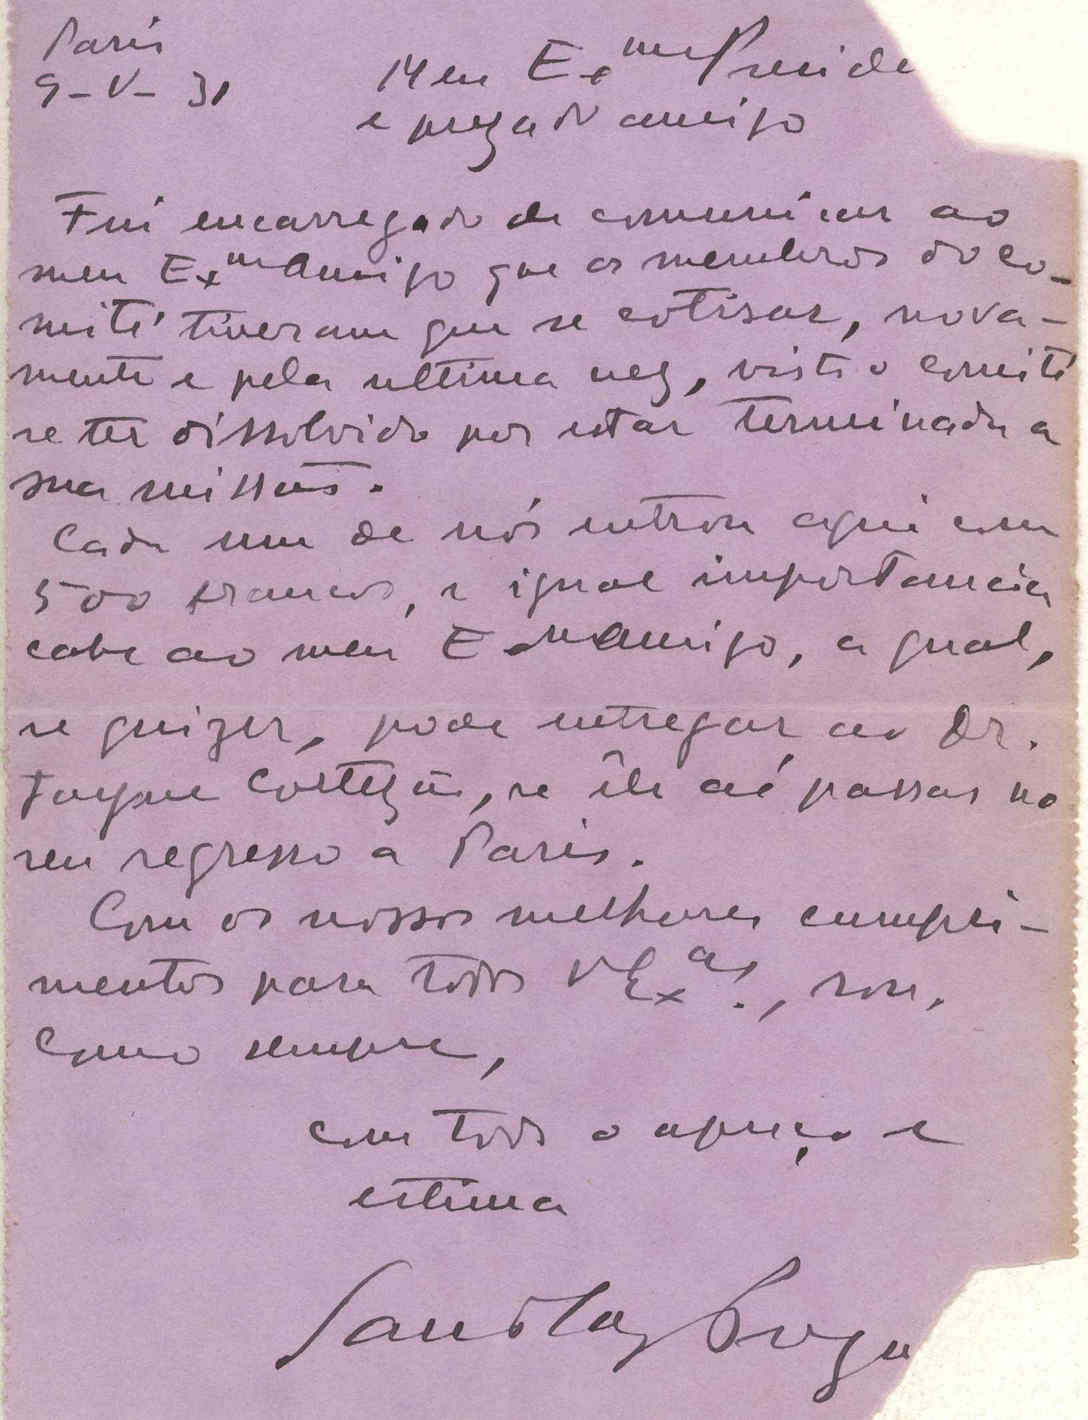 Paris
9-V-31
Meu Ex.mo Preside
e prezado amigo
Fui encarregado de comunicar ao
meu Ex.mo Amigo que os membros do co-
mité tiveram que se cotisar, nova-
mente e pela ultima vez, visto o comité
se ter dissolvido por estar terminada a
sua missão.
Cada um de nós entrou aqui com
500 francos, e igual importancia
cabe ao meu Ex.mo Amigo, a qual,
se quizer, pode entregar ao Dr.
Jayme Cortezão, se êle aí passar no
seu regresso a Paris.
Com os nossos melhores cumpri-
mentos para todos V. Ex.as, sou,
como sempre,
com todo o apreço e
estima